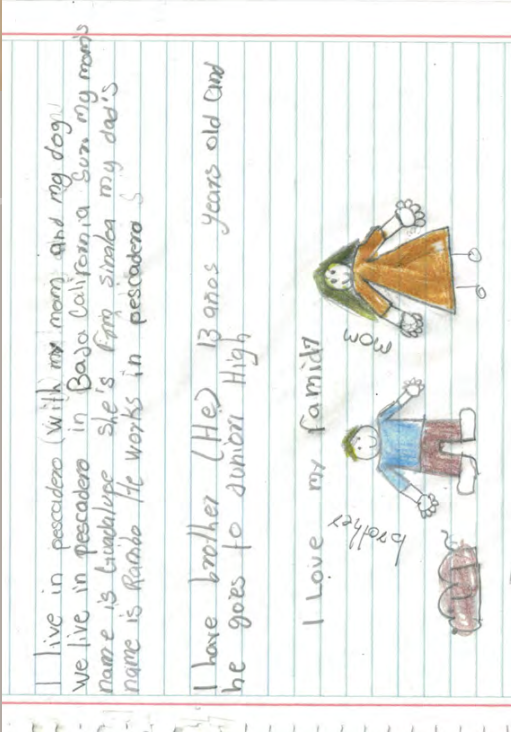 I live in pescadero (with my mom and my dog
we live in pescadero in Baja California Sur. my mom's
name is Guadalupe she's from sinaloa my dad's
name is Rambo He works in pescadero S
I have brother (He) 13 anos years old and
he goes to Juniori High
I Love my Family
mom
brother